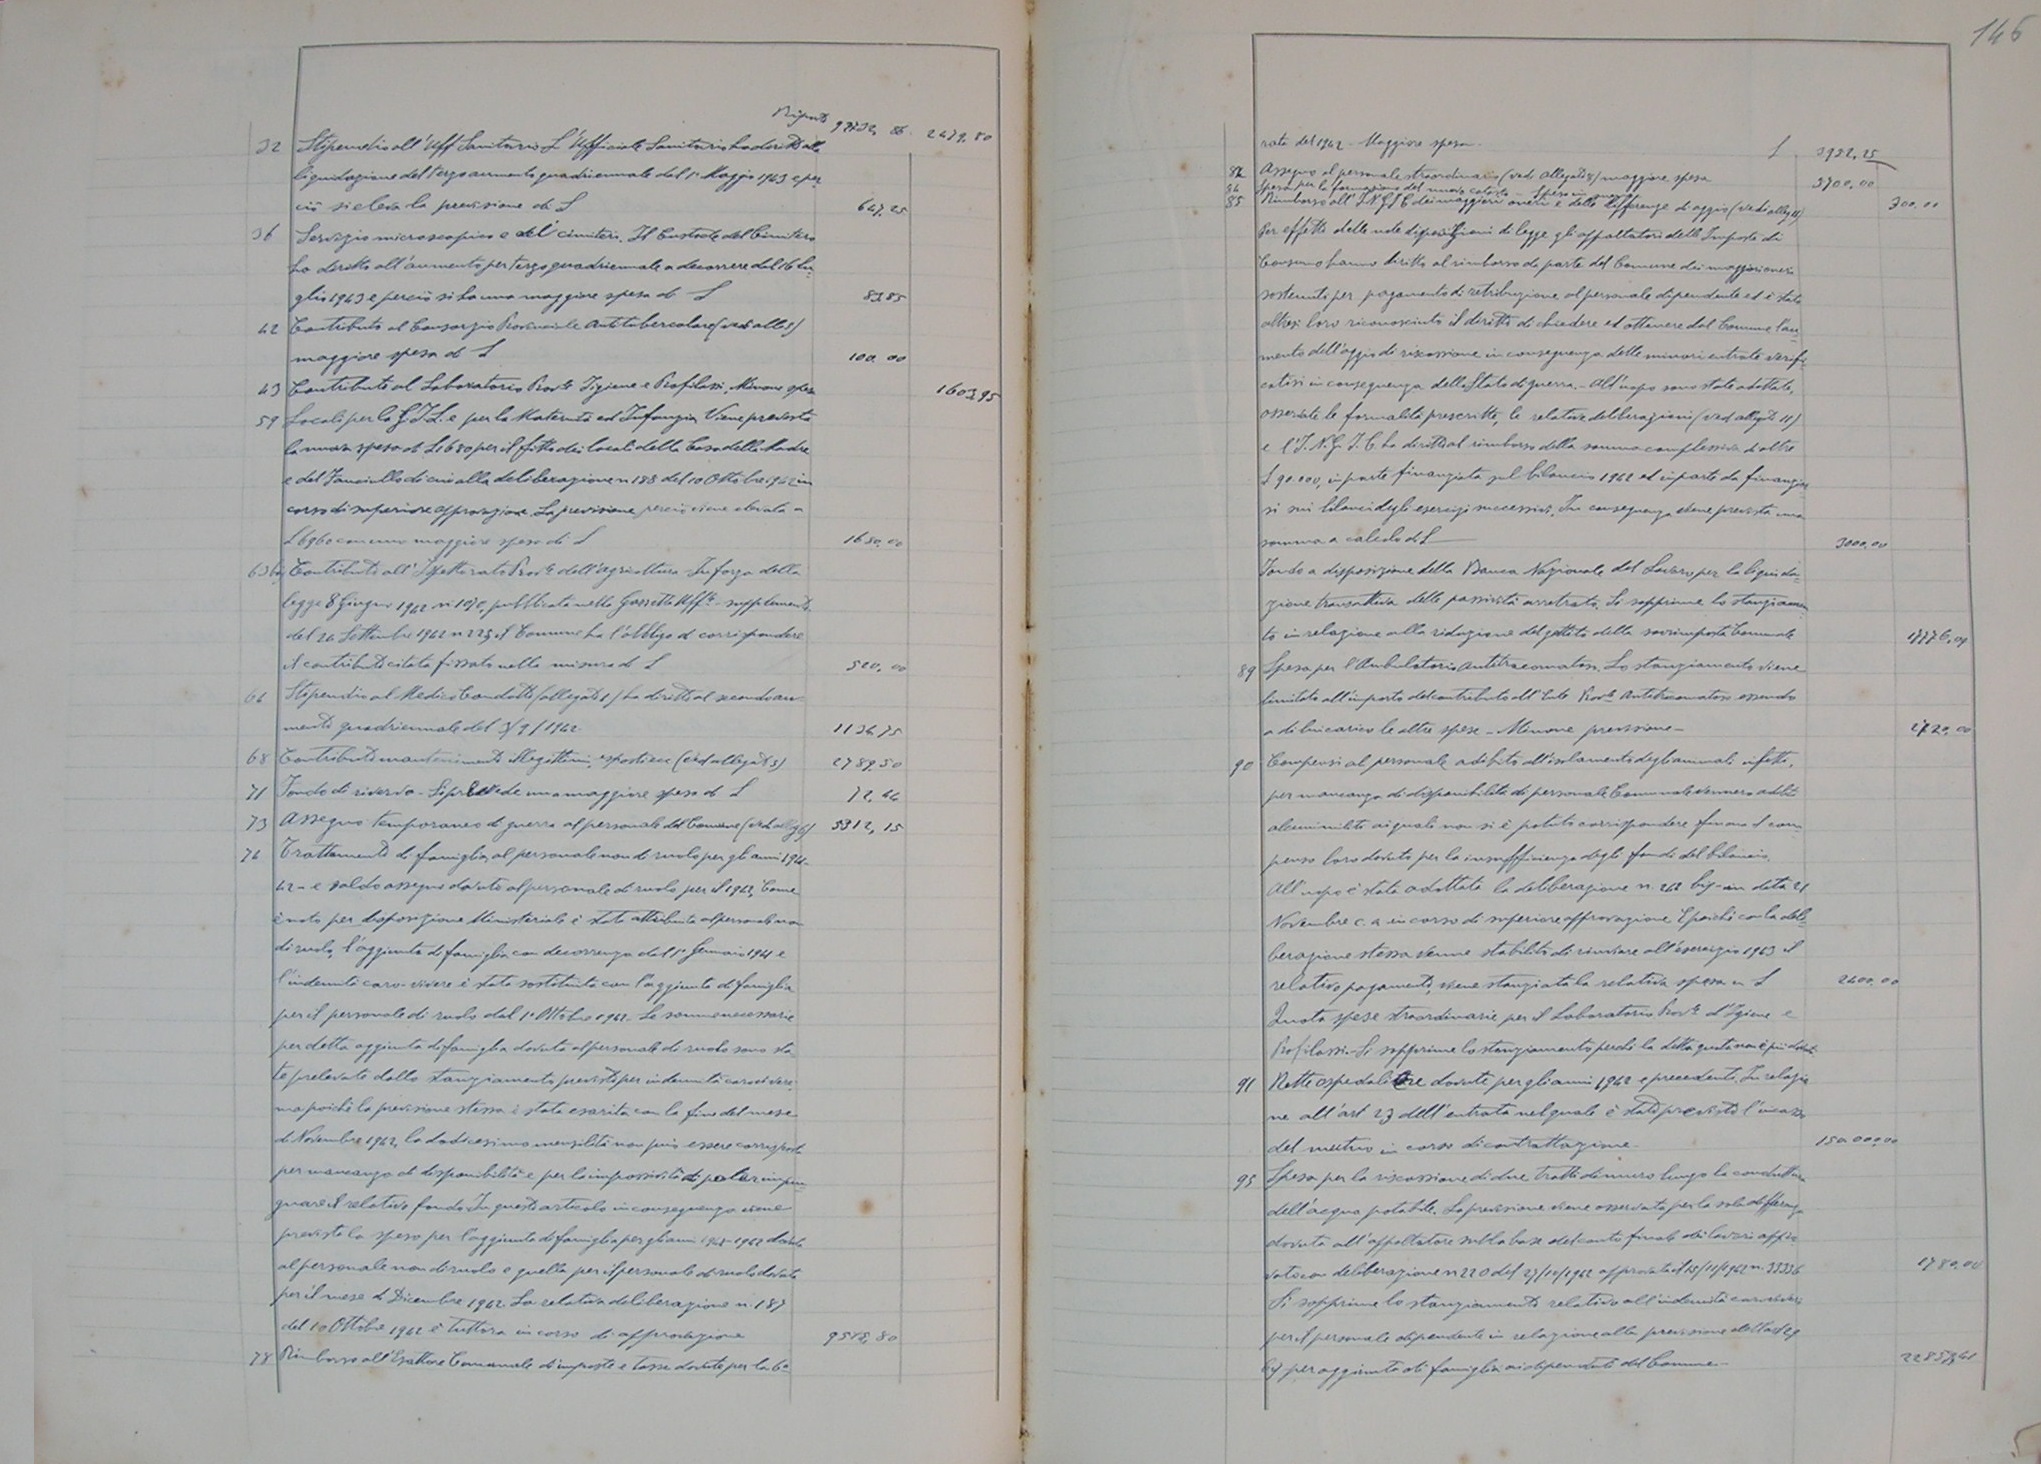 Riporto 97732,86 2479,80
32 Stipendio all'Uff Sanitario L'Ufficiale Sanitario ha diritto alla
liquidazione del terzo aumento quadriennale dal 1° Maggio 1943 e per
ciò si eleva la previsione di L 647,25
36 Servizio microscopico e del cimitero. Il Custode del Cimitero
ha diritto all'aumento per terzo quadriennale a decorrere dal 16 Lu-
glio 1943 e perciò si ha una maggiore spesa di L 83,85
42 Contributo al Consorzio Provinciale Antitubercolare (vedi all 5)
maggiore spesa di L 100.00
43 Contributo al Laboratorio Prov.le Igiene e Profilassi. Minore spesa 1603,95
59 Locali per la G.I.L. e per la Maternità ed Infanzia Viene prevista
la nuova spesa di L 1680 per il fitto dei locali della Casa della Madre
e del Fanciullo di cui alla deliberazione n 188 del 10 Ottobre 1942 in
corso di superiore approvazione. La previsione perciò viene elevata a
L 6960 con una maggiore spesa di L 1680,00
63 bis Contributo all'Ispettorato Prov.le dell'agricoltura - In forza della
legge 8 Giugno 1942 n 1070, pubblicata nella Gazzetta Uff.le - supplemento
del 24 Settembre 1942 n 225 il Comune ha l'obbligo di corrispondere
il contributo citato fissato nella misura di L 520,00
64 Stipendio al Medico Condotto (allegato 1) ha diritto al secondo au-
mento quadriennale del 3/9/1942 1136,75
68 Contributo mantenimento illegittimi, esposti ecc (vedi allegato 3) 2789,50
71 Fondo di riserva - Si prevede una maggiore spesa di L 72,44
73 Assegno temporaneo di guerra al personale del Comune (vedi alleg 6) 5312,15
76 Trattamento di famiglia al personale non di ruolo per gli anni 1941-
42 - e saldo assegno dovuto al personale di ruolo per il 1942. Come
è noto per disposizione Ministeriale è stato attribuito al personale non
di ruolo, l'aggiunta di famiglia con decorrenza dal 1° Gennaio 1941 e
l'indennità caro-vivere è stata sostituita con l'aggiunta di famiglia
per il personale di ruolo dal 1° Ottobre 1942. Le somme necessarie
per detta aggiunta di famiglia dovuta al personale di ruolo sono sta
te prelevate dallo stanziamento previsto per indennità caroviveri
ma poichè la previsione stessa è stata esaurita con la fine del mese
di Novembre 1942, la dodicesima mensilità non può essere corrisposta
per mancanza di disponibilità e per la impossibilità di poter impe-
gnare il relativo fondo. In questo articolo in conseguenza viene
prevista la spesa per l'aggiunta di famiglia per gli anni 1941-1942 dovuta
al personale non di ruolo e quella per il personale di ruolo dovuta
per il mese di Dicembre 1942 La relativa deliberazione n. 187
del 10 Ottobre 1942 è tuttora in corso di approvazione 9518,80
78 Rimborso all'Esattore Comunale di imposte e tasse dovute per la 6ª
146
rata del 1942 - Maggiore spesa L 3922,25
82 Assegno al personale straordinario (vedi allegato 8) maggiore spesa 3700,00
84 Spesa per la formazione del nuovo catasto - Spesa in meno 300,00
85 Rimborso all'I.N.G.I.C dei maggiori oneri e delle differenze di aggio (vedi alleg 11)
Per effetto delle note disposizioni di legge gli appaltatori delle Imposte di
Consumo hanno diritto al rimborso da parte del Comune dei maggiori oneri
sostenuti per pagamento di retribuzione al personale dipendente ed è stato
altresì loro riconosciuto il diritto di chiedere ed ottenere dal Comune l'au
mento dell'aggio di riscossione in conseguenza delle minori entrate verifi-
catisi in conseguenza dello Stato di guerra. - All'uopo sono state adottate,
osservate le formalità prescritte, le relative deliberazioni (vedi allegato 11)
e l'I.N.G.I.C. ha diritto al rimborso della somma complessiva di oltre
L 90.000, in parte finanziata sul bilancio 1942 ed in parte da finanziar
si sui bilanci degli esercizi successivi. In conseguenza viene prevista una
somma a calcolo di L 3000,00
Fondo a disposizione della Banca Nazionale del Lavoro per la liquida-
zione transattiva delle passività arretrate. Si sopprime lo stanziamen-
to in relazione alla riduzione del gettito della sovrimposta Comunale
89 Spesa per l'Ambulatorio Antitracomatoso. Lo stanziamento viene
limitato all'importo del contributo all'Ente Prov.le Antitracomatoso essendo
a di lui carico le altre spese - Minore previsione - 1720,00
90 Compensi al personale adibito all'isolamento degli ammalati infetti,
per mancanza di disponibilità di personale Comunale vennero adibiti
alcuni militi ai quali non si è potuto corrispondere finora il com-
penso loro dovuto per la insufficienza degli fondi del bilancio.
All'uopo è stata adottata la deliberazione n. 262 bis - in data 21
Novembre c. a. in corso di superiore approvazione E poichè con la deli-
berazione stessa venne stabilito di rinviare all'esercizio 1943 il
relativo pagamento, viene stanziata la relativa spesa in L 2400,00
Quota spese straordinarie per il Laboratorio Prov.le d'Igiene e
Profilassi - Si sopprime lo stanziamento perchè la detta quota non è più dovuta
91 Rette ospedaliere dovute per gli anni 1942 e precedenti. In relazio
ne all'art 23 dell'entrata nel quale è stato previsto l'incasso
del mutuo in corso di contrattazione - 150.000,00
95 Spesa per la riscossione di due tratti di muro lungo la conduttura
dell'acqua potabile. La previsione viene osservata per la sola differenza
dovuta all'appaltatore sulla base del conto finale dei lavori appro
vato con deliberazione n 220 del 27/10/1942 approvata il 15/11/1942 n. 33336 1780,00
Si sopprime lo stanziamento relativo all'indennità caroviveri
per il personale dipendente in relazione alla previsione dell'art
67 per aggiunta di famiglia ai dipendenti del Comune -